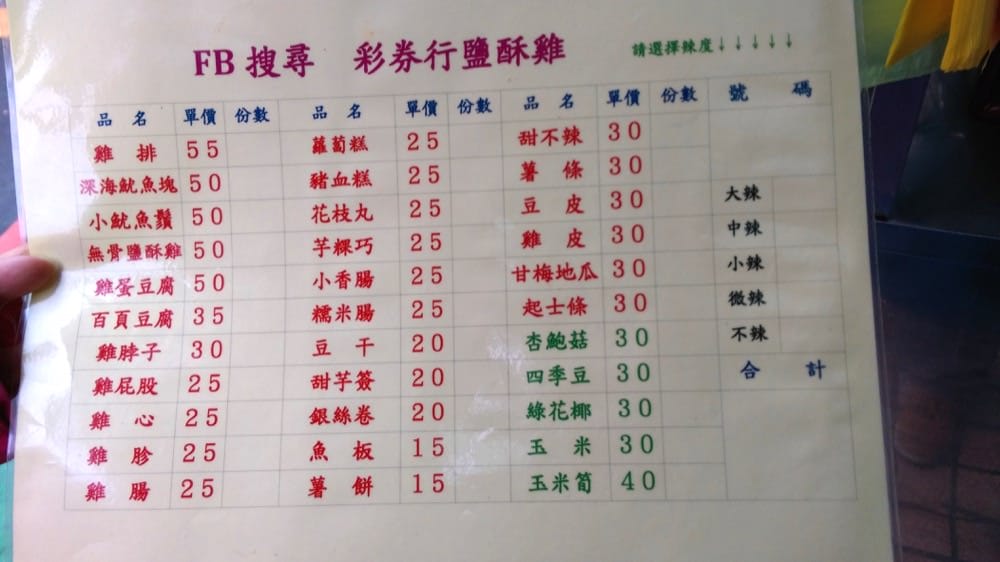 FB 搜尋 彩券行鹽酥雞 請選擇辣度↓↓↓↓↓
品 名 單價 份數 品 名 單價 份數 品 名 單價 份數 號 碼
雞 排 55 蘿蔔糕 25 甜不辣 30
深海魷魚塊 50 豬血糕 25 薯 條 30
小魷魚鬚 50 花枝丸 25 豆 皮 30 大辣
無骨鹽酥雞 50 芋粿巧 25 雞 皮 30 中辣
雞蛋豆腐 50 小香腸 25 甘梅地瓜 30 小辣
百頁豆腐 35 糯米腸 25 起士條 30 微辣
雞脖子 30 豆 干 20 杏鮑菇 30 不辣
雞屁股 25 甜芋簽 20 四季豆 30 合 計
雞 心 25 銀絲卷 20 綠花椰 30
雞 胗 25 魚 板 15 玉 米 30
雞 腸 25 薯 餅 15 玉米筍 40